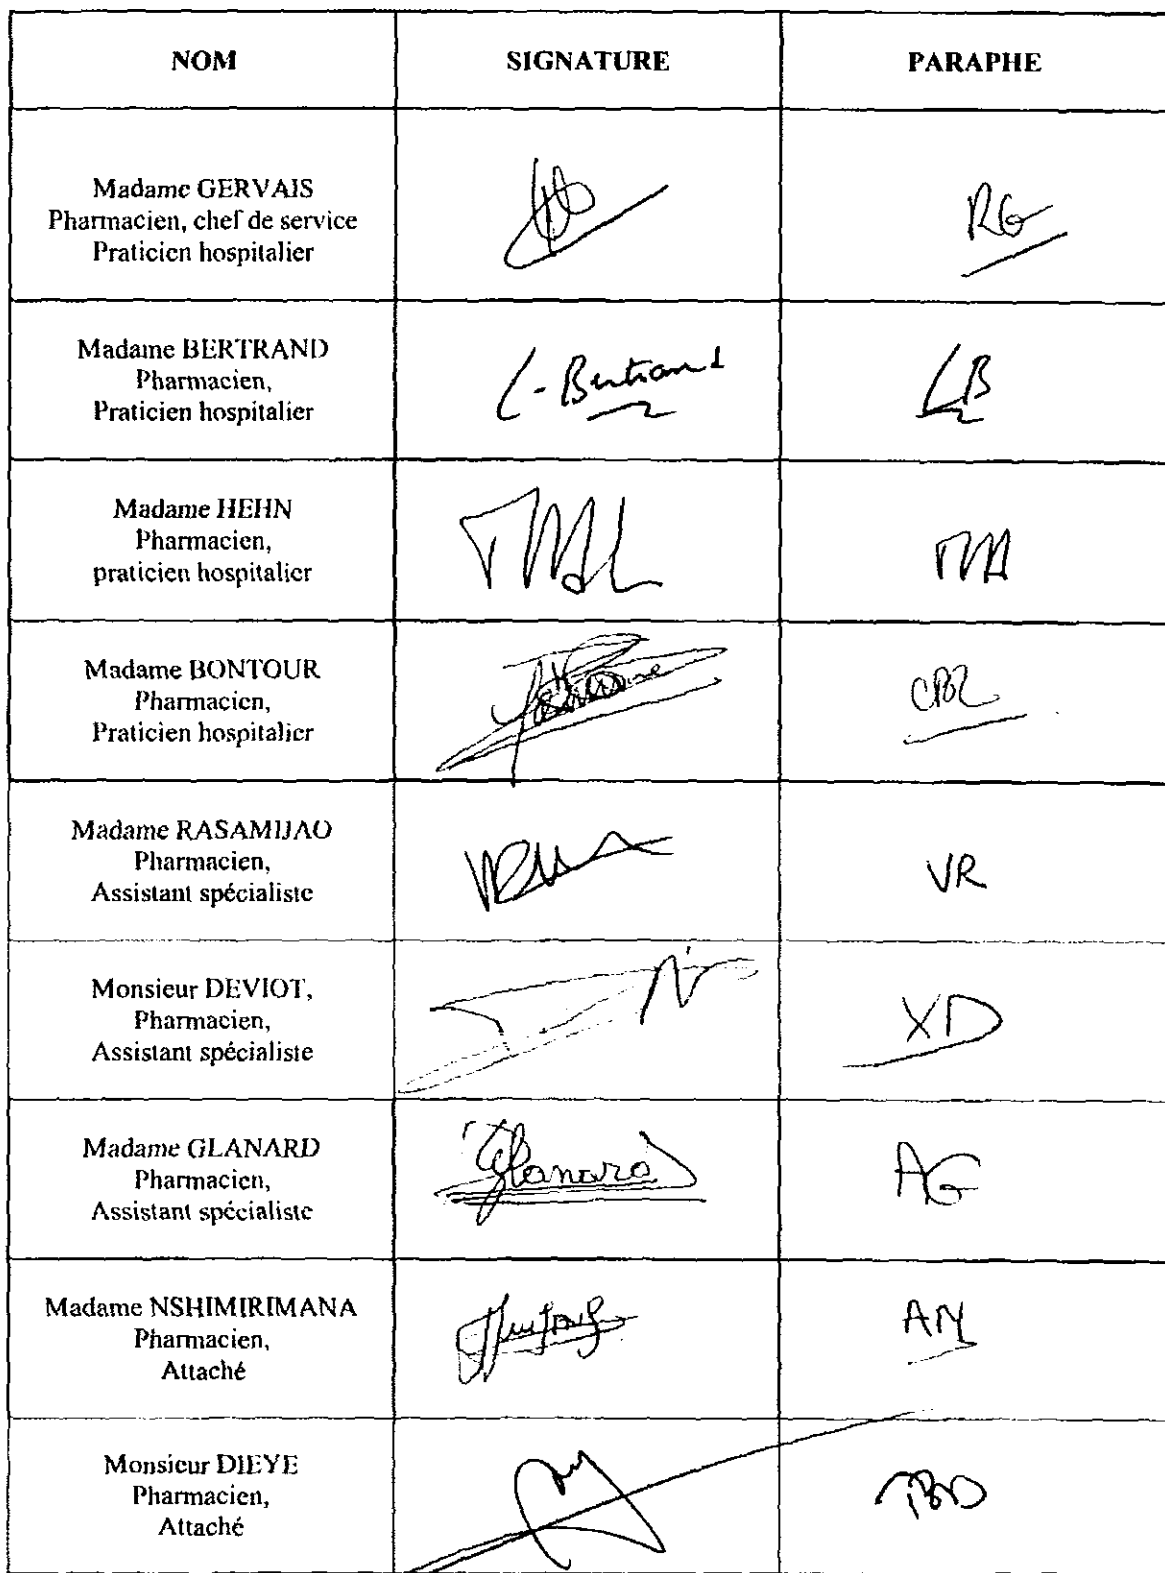 NOM SIGNATURE PARAPHE
Madame GERVAIS
Pharmacien, chef de service
Praticien hospitalier
RG
Madame BERTRAND
Pharmacien,
Praticien hospitalier
L-Bertrand
LB
Madame HEHN
Pharmacien,
praticien hospitalier
MH
Madame BONTOUR
Pharmacien,
Praticien hospitalier
Madame RASAMIJAO
Pharmacien,
Assistant spécialiste
VR
Monsieur DEVIOT,
Pharmacien,
Assistant spécialiste
XD
Madame GLANARD
Pharmacien,
Assistant spécialiste
Glanard
AG
Madame NSHIMIRIMANA
Pharmacien,
Attaché
AN
Monsieur DIEYE
Pharmacien,
Attaché